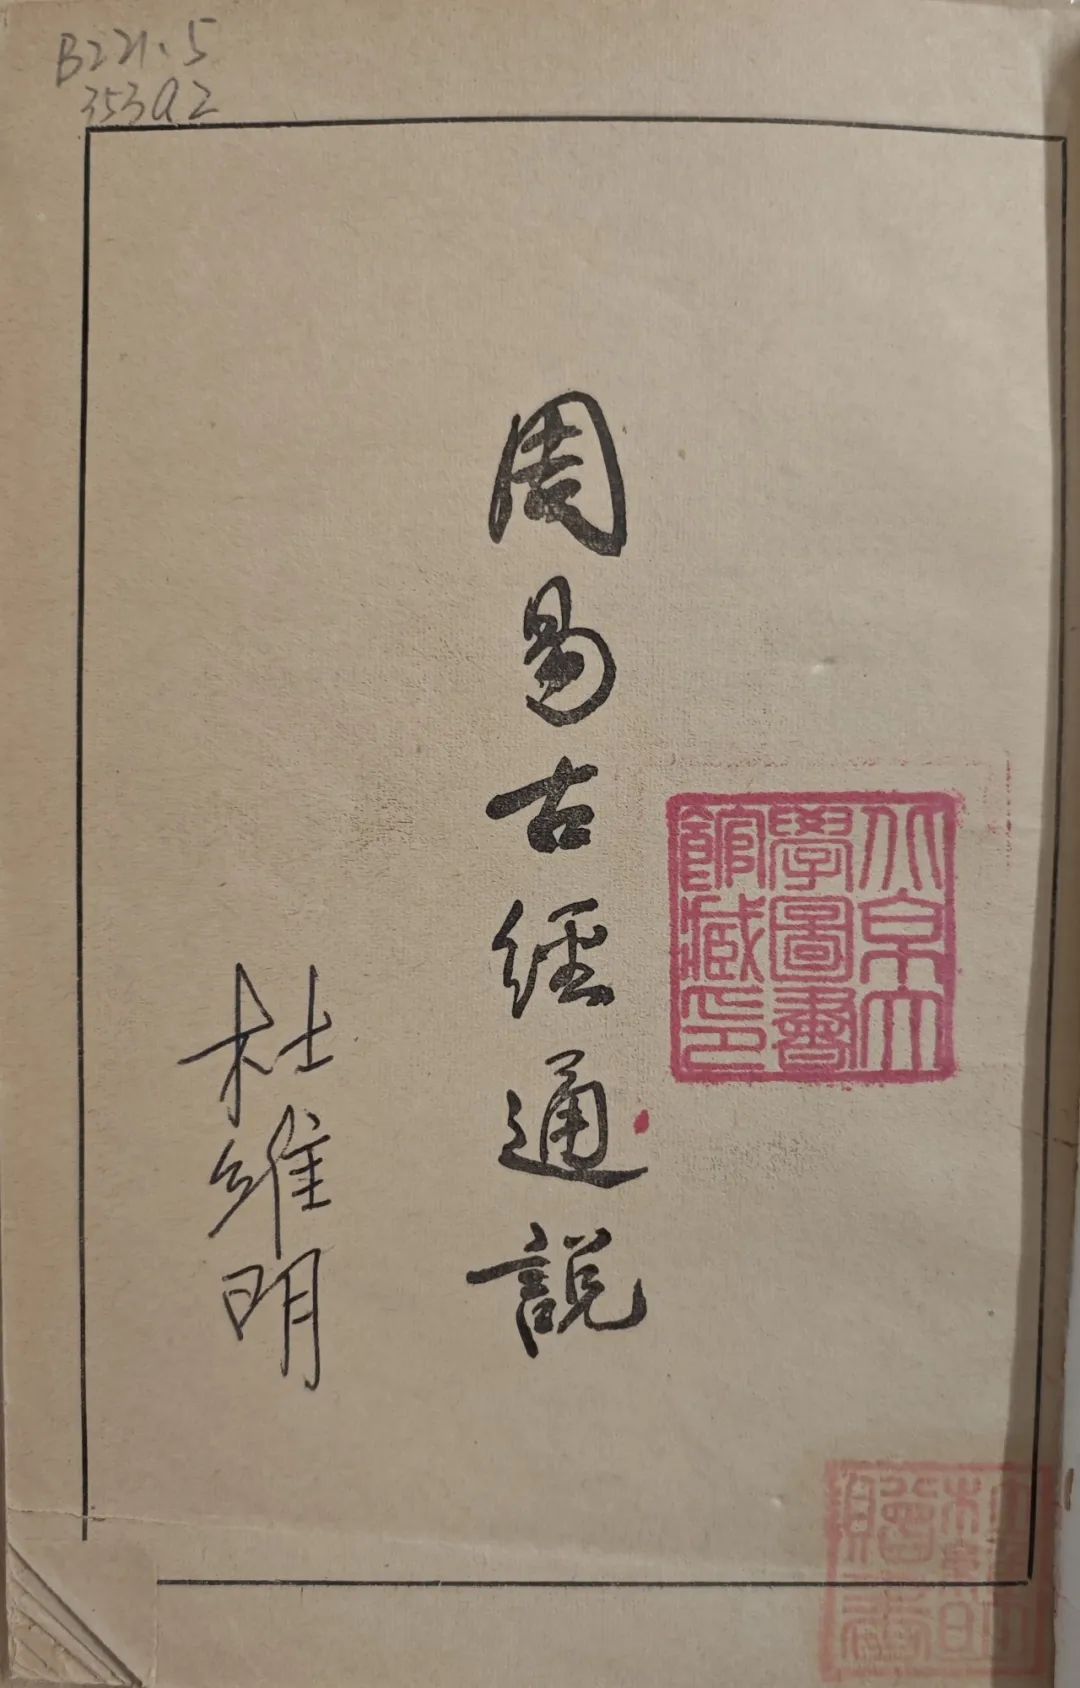 B221.5
353a2
周易古經通說
北京大
學圖書
館藏印
杜維明